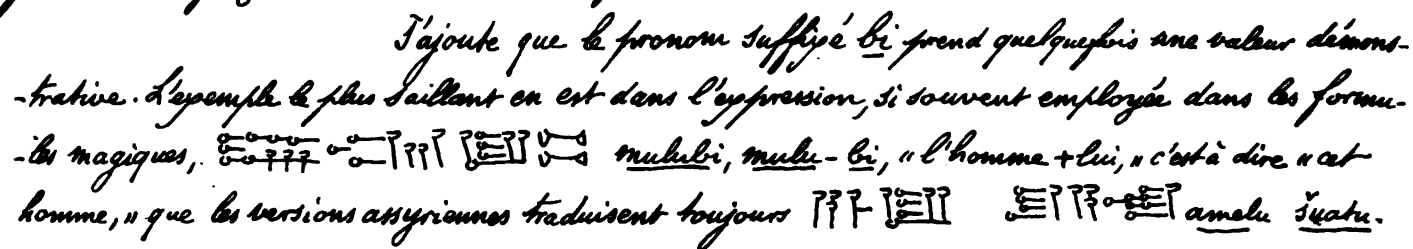 J'ajoute que le pronom suffixé bi prend quelquefois une valeur démons-
-trative. L'exemple le plus saillant en est dans l'expression, si souvent employée dans les formu-
-les magiques, mulubi, mulu-bi, "l'homme + lui," c'est à dire "cet
homme," que les versions assyriennes traduisent toujours amelu šuatu.